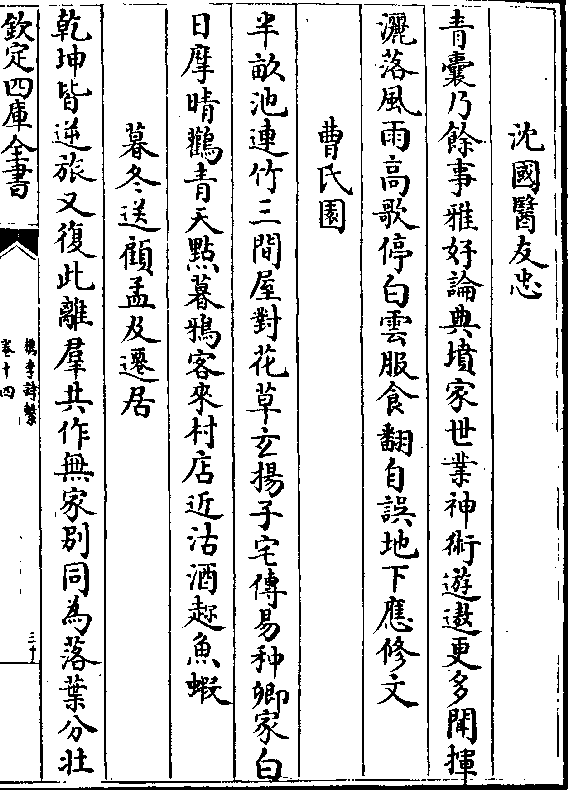 沈國醫友忠
青囊乃餘事雅好論典墳家世業神術遊遨更多聞揮
灑落風雨高歌停白雲服食翻自誤地下應修文
曹氏園
半畝池連竹三間屋對花草玄揚子宅傳易种卿家白
日摩晴鸛青天點暮鴉客來村店近沽酒趂魚蝦
暮冬送顧孟及遷居
乾坤皆逆旅又復此離羣共作無家别同為落葉分壯
欽定四庫全書
檇李詩繫
卷十四
三十